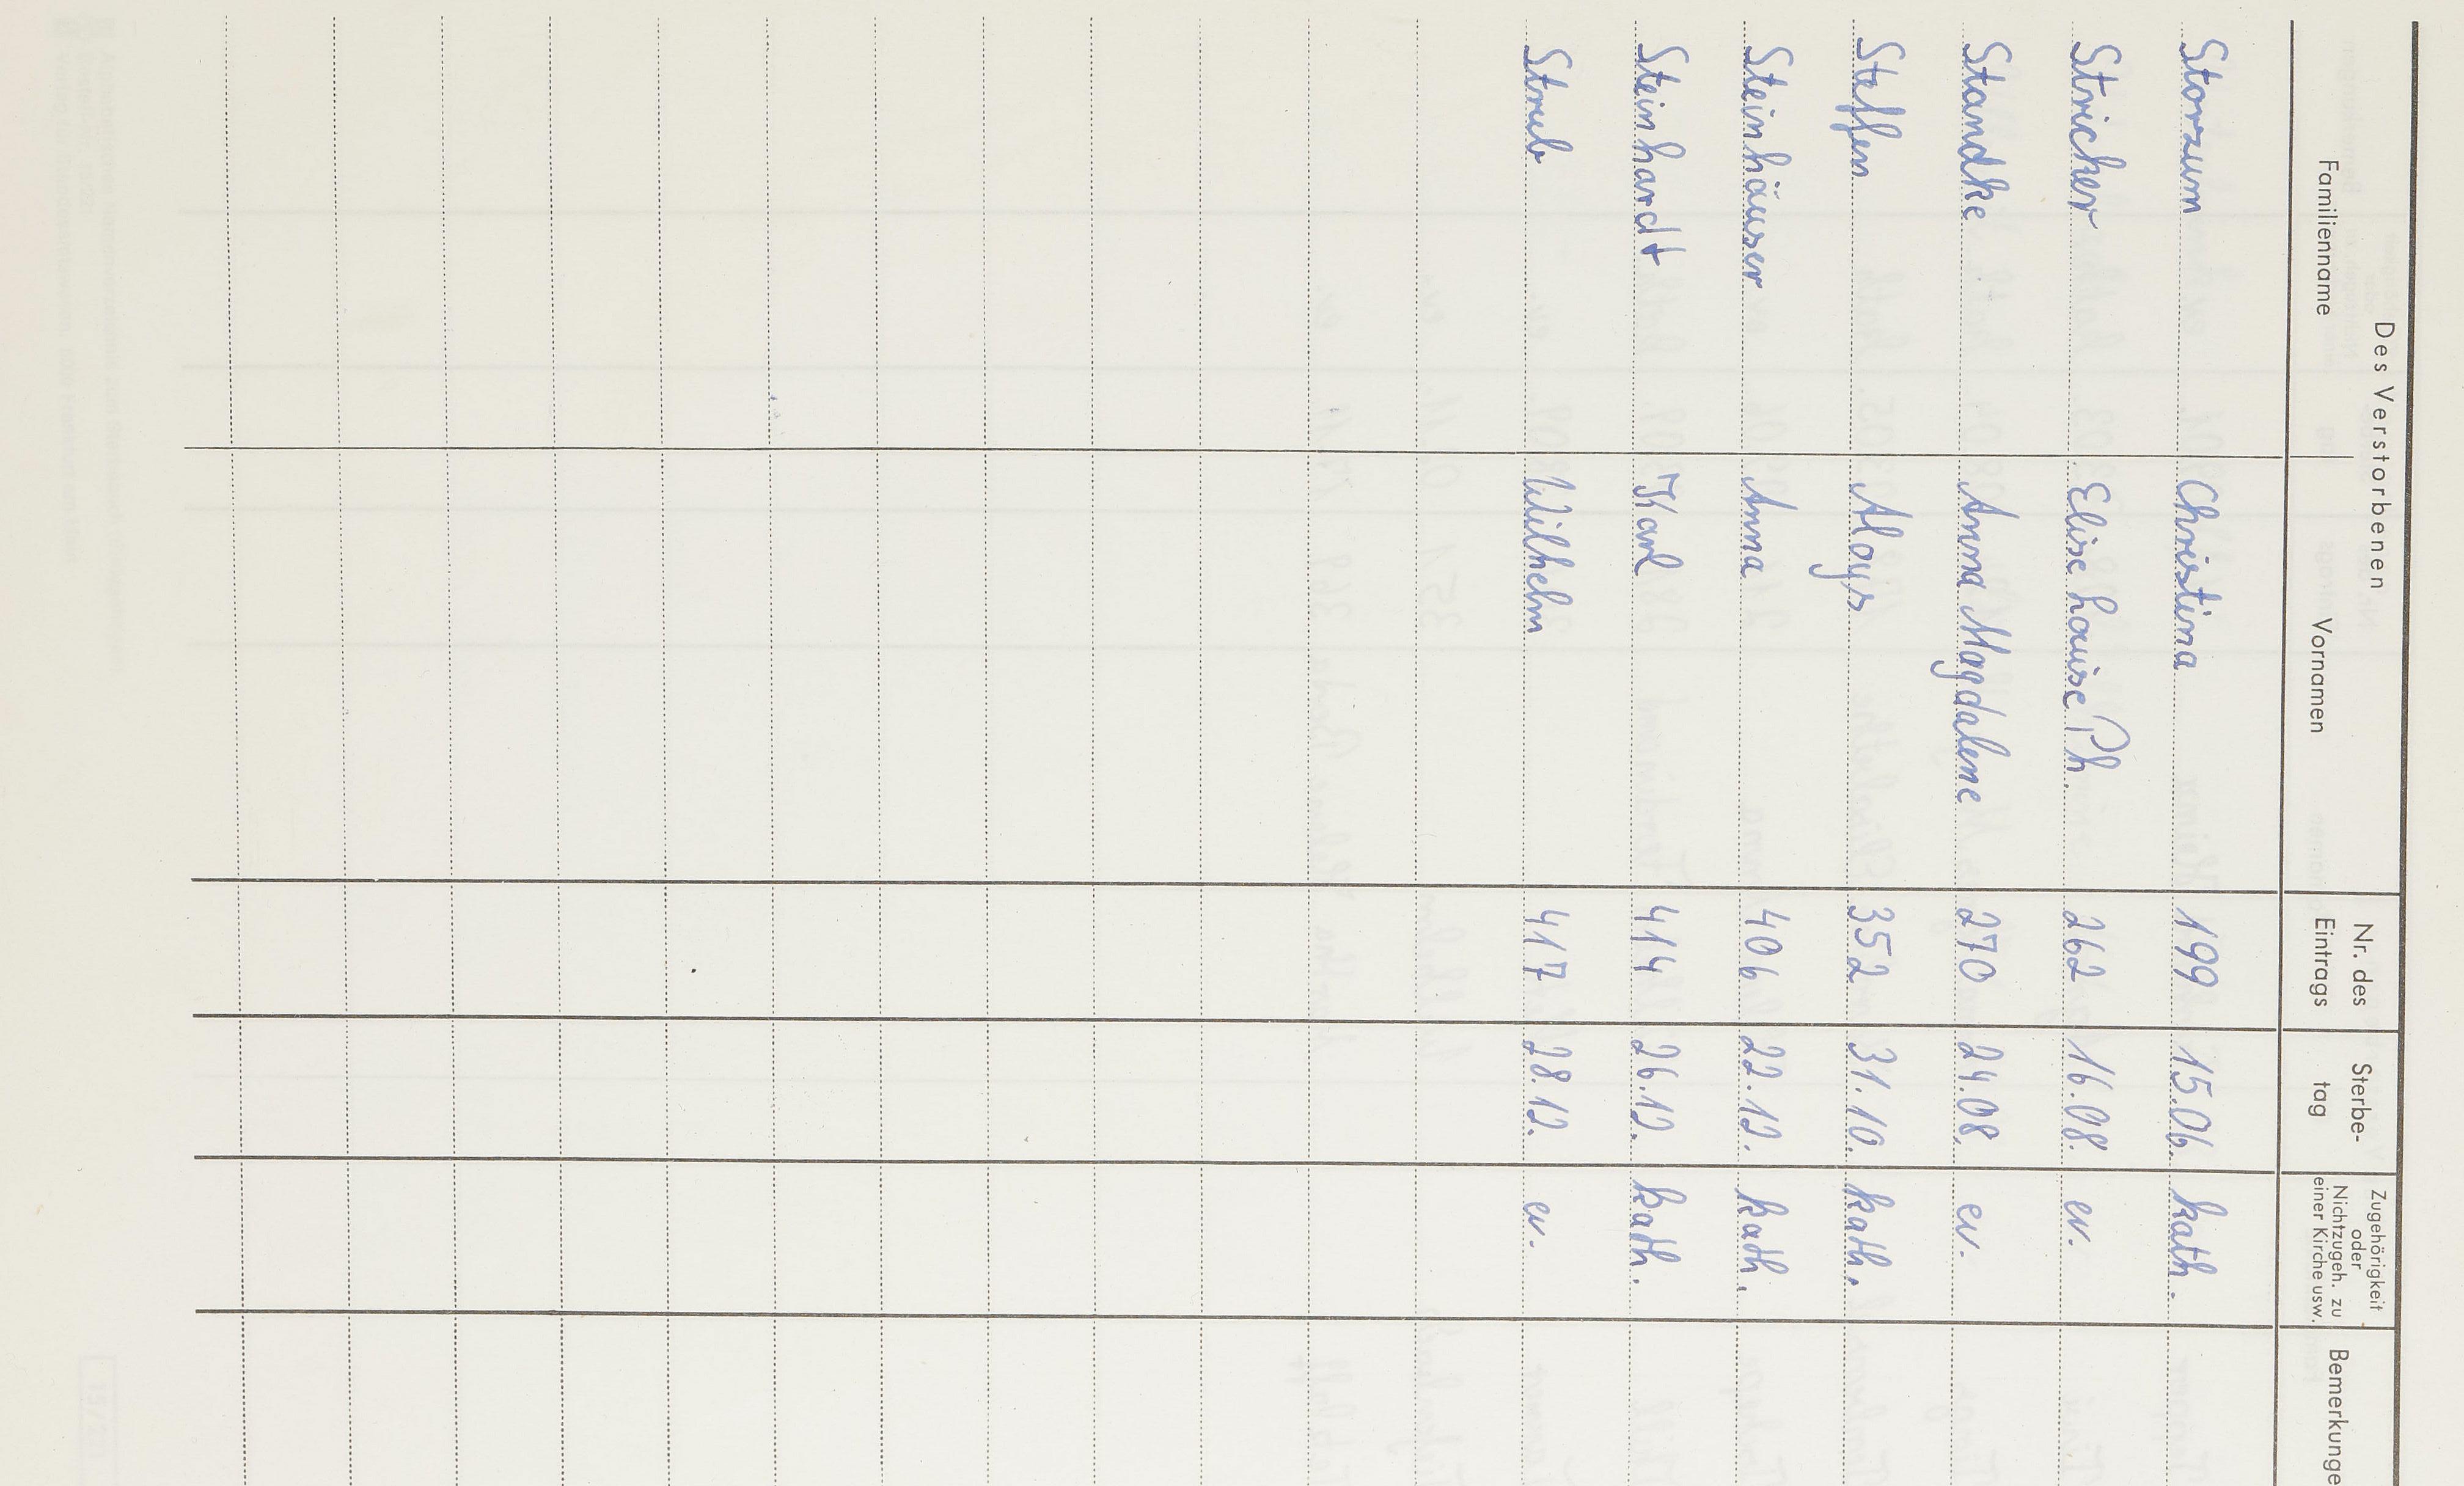 Des Verstorbenen
Familienname Vornamen Nr. des Eintrags Sterbe-tag Zugehörigkeit oder Nichtzugeh. zu einer Kirche usw. Bemerkunge
Storzum Christina 199 15.06. kath.
Stricker Elise Louise Ph. 262 16.08. ev.
Standke Anna Magdalene 270 24.08. ev.
Steffen Aloys 352 31.10. kath.
Steinhäuser Anna 406 22.12. kath.
Steinhardt Karl 414 26.12. kath.
Strub Wilhelm 417 28.12. ev.